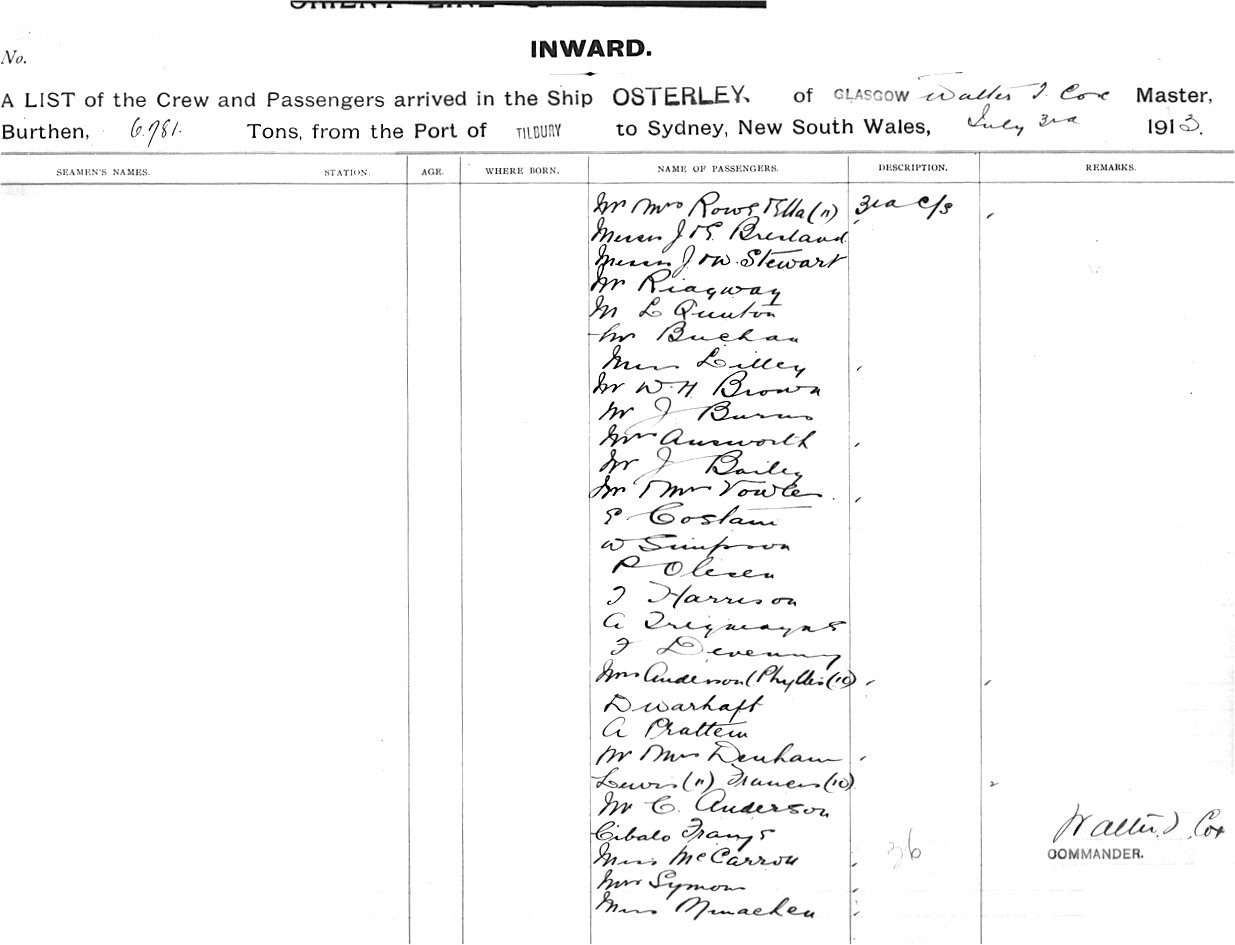 ORIENT LINE OF
INWARD.
No.
A LIST of the Crew and Passengers arrived in the Ship OSTERLEY. of GLASGOW Walter J. Coxe Master,
Burthen, 6,781. Tons, from the Port of TILBURY to Sydney, New South Wales, July 3rd 1913.
SEAMEN'S NAMES. STATION. AGE. WHERE BORN. NAME OF PASSENGERS. DESCRIPTION. REMARKS.
Mr Mrs Rowe & Ella (11) 3rd c/s
Messrs J & E. Bresland
Messrs J & W. Stewart
Mr Ridgway
M L Quinton
Mr Buchan
Miss Lilley
Mr W. H. Brown
Mr J Burns
Mrs Ainsworth
Mr J Bailey
Mr & Mrs Vowles
E Costain
W Simpson
P Olesen
J Harrison
A Tregmayne
F Devenny
Mrs Anderson (Phyllis (10)
D Warhaft
A Prattem
Mr Mrs Denham
Lewis (11) Frances (10)
Mr C. Anderson
Cibalo
Miss McCarron 36
Mrs Symon
Miss
Walter J. Cox
COMMANDER.